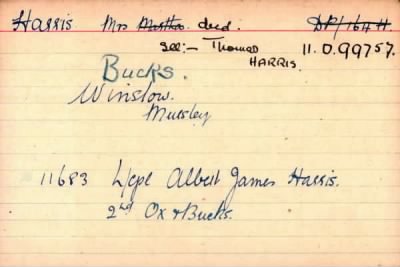 Harris Mrs Martha decd. DP/164 H.
see:- Thomas HARRIS. 11.0.99757.
Bucks.
Winslow.
Mursley
11683 L/cpl Albert James Harris.
2nd Ox & Bucks.